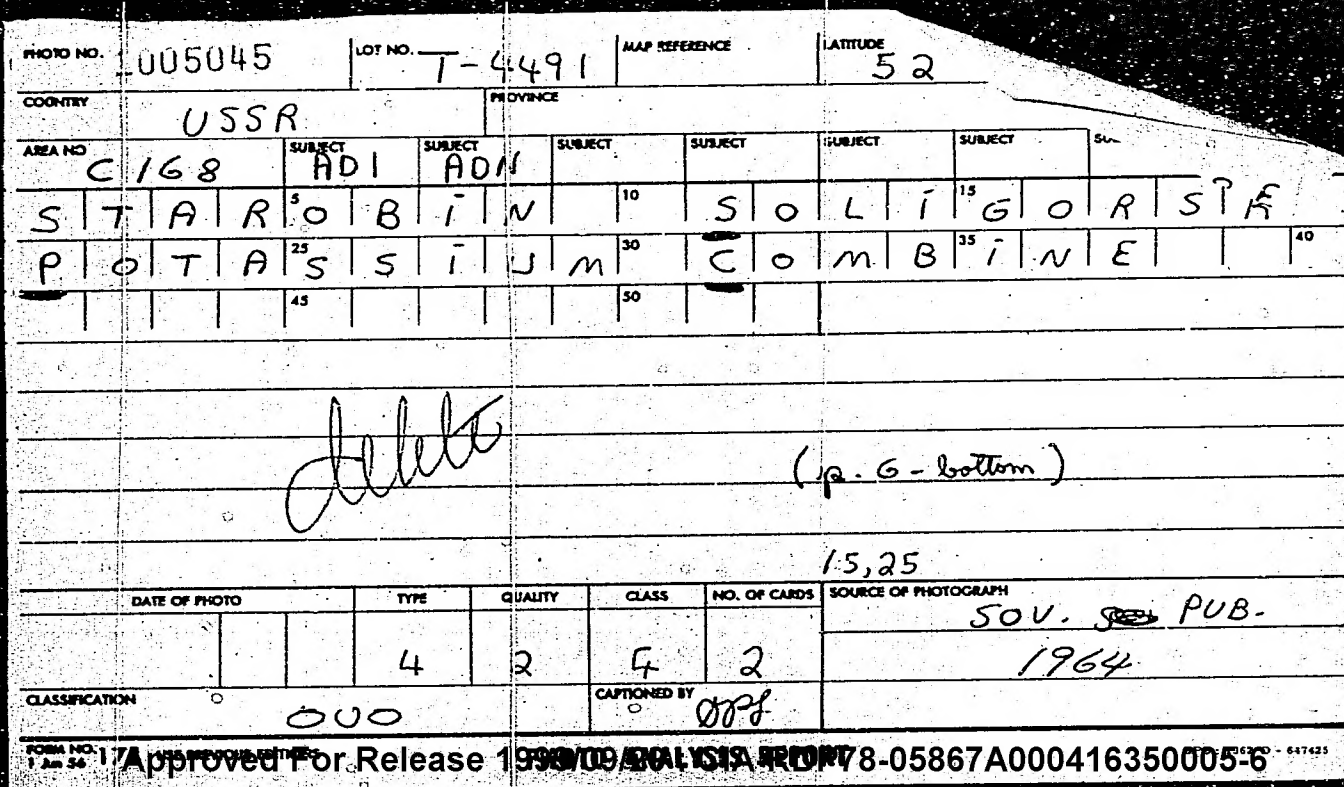 PHOTO NO. 1005045 LOT NO. T-4491 MAP REFERENCE LATITUDE 52
COUNTRY USSR PROVINCE
AREA NO C168 SUBJECT ADI SUBJECT ADN SUBJECT SUBJECT SUBJECT SUBJECT
STAROBIN SOLIGORSK
POTASSIUM COMBINE
5 10 15
25 30 35 40
45 50
delete
(p. 6 - bottom)
15,25
DATE OF PHOTO TYPE QUALITY CLASS NO. OF CARDS SOURCE OF PHOTOGRAPH
SOV. PUB.
4 2 2 1964
CLASSIFICATION OUO CAPTIONED BY
FORM NO. 17A USE PREVIOUS EDITIONS
1 Jun 56
Approved For Release 1999/09/20 : CIA-RDP78-05867A000416350005-6